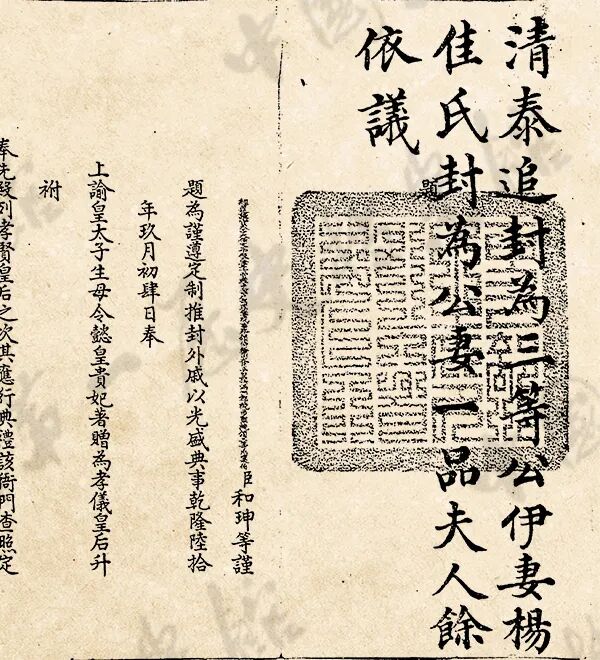 清泰追封為三等公伊妻楊
佳氏封為公妻一品夫人餘
依議
題
臣和珅等謹
題為謹遵定制推封外戚以光盛典事乾隆陸拾
年玖月初肆日奉
上諭皇太子生母令懿皇貴妃著贈為孝儀皇后升
祔
奉先殿列孝賢皇后之次其應行典禮該衙門查照定